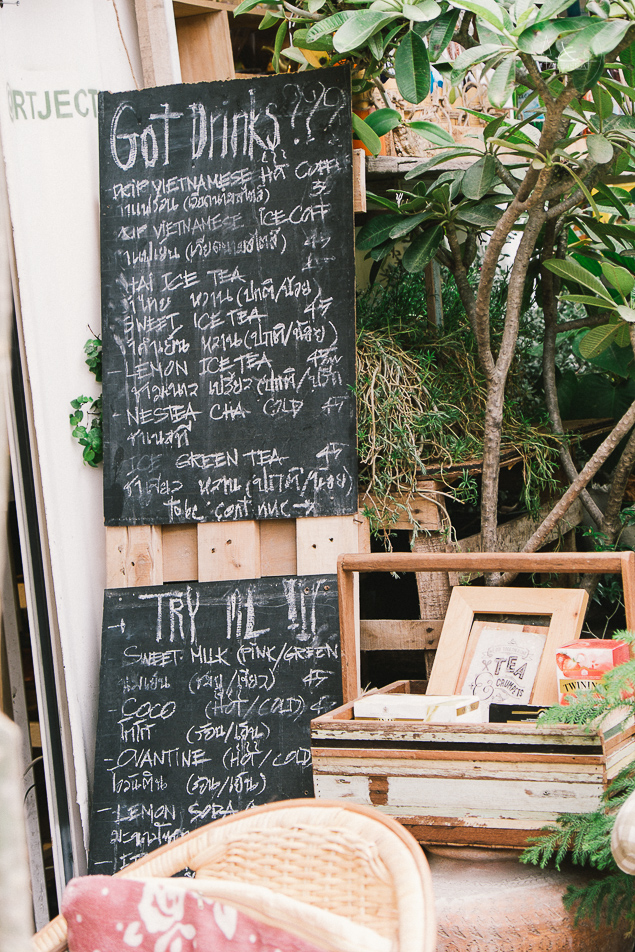 RTJECT
Got Drinks???
DRIP VIETNAMESE HOT COFF
กาแฟร้อน
DRIP VIETNAMESE ICE COFF
กาแฟเย็น
THAI ICE TEA
ชาไทย หวาน (ปกติ/น้อย)
SWEET ICE TEA 45
ชาดำเย็น หวาน (ปกติ/น้อย)
- LEMON ICE TEA 45
ชามะนาว เปรี้ยว (ปกติ/
- NESTEA CHA COLD 45
ชาเนสที
ICE GREEN TEA 45
ชาเขียว หวาน (ปกติ/น้อย)
to be continue →
→ TRY ME !!!
SWEET MILK (PINK/GREEN
นมเย็น (ชมพู/เขียว) 45
- COCO (HOT/COLD) 45
โกโก้ (ร้อน/เย็น)
- OVANTINE (HOT/COLD
โอวันติน (ร้อน/เย็น)
- LEMON SODA
มะนาวโซดา
TEA
& CRUMPETS
TWININ